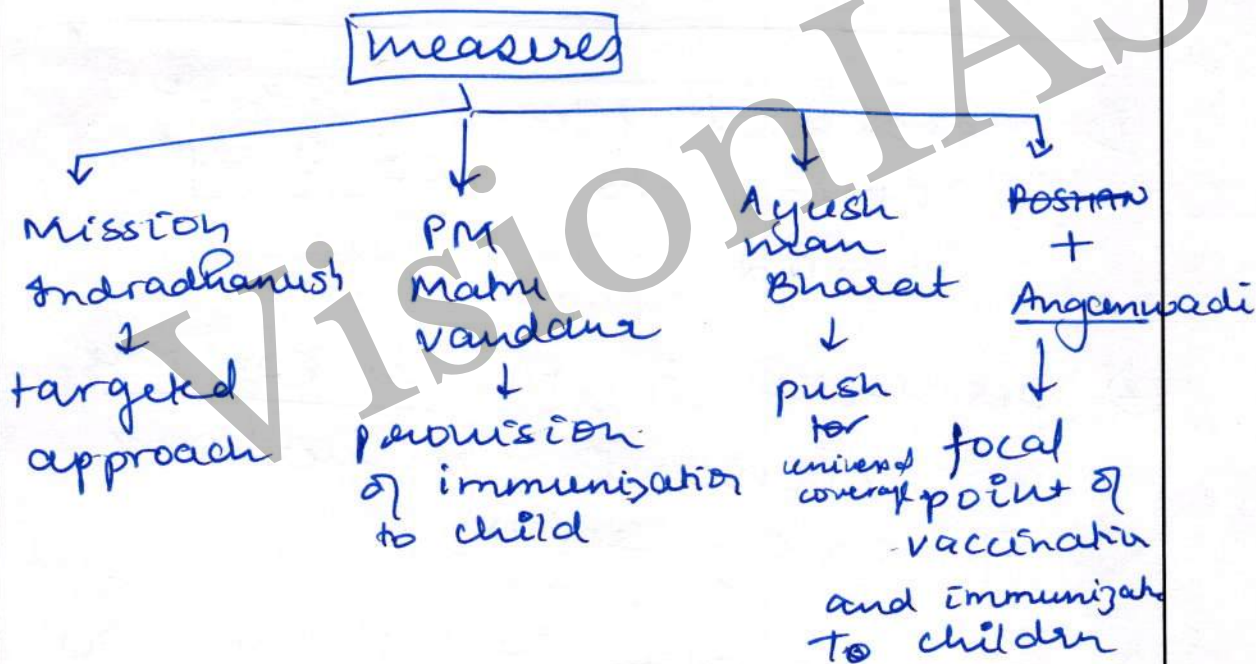 measures
Mission
Indradhanush
targeted
approach
PM
Matru
vandana
provision
of immunization
to child
Ayush
man
Bharat
push
for
universal
coverage
POSHAN
+
Anganwadi
focal
point of
vaccination
and immunizat
To children
VisionIAS